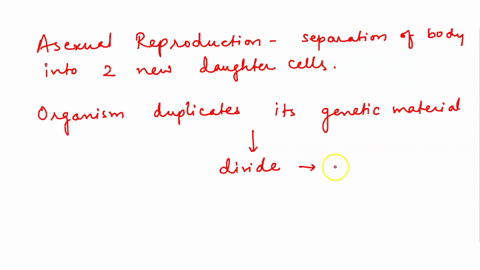 Asexual Reproduction - separation of body
into 2 new daughter cells.
Organism duplicates its genetic material
↓
divide →